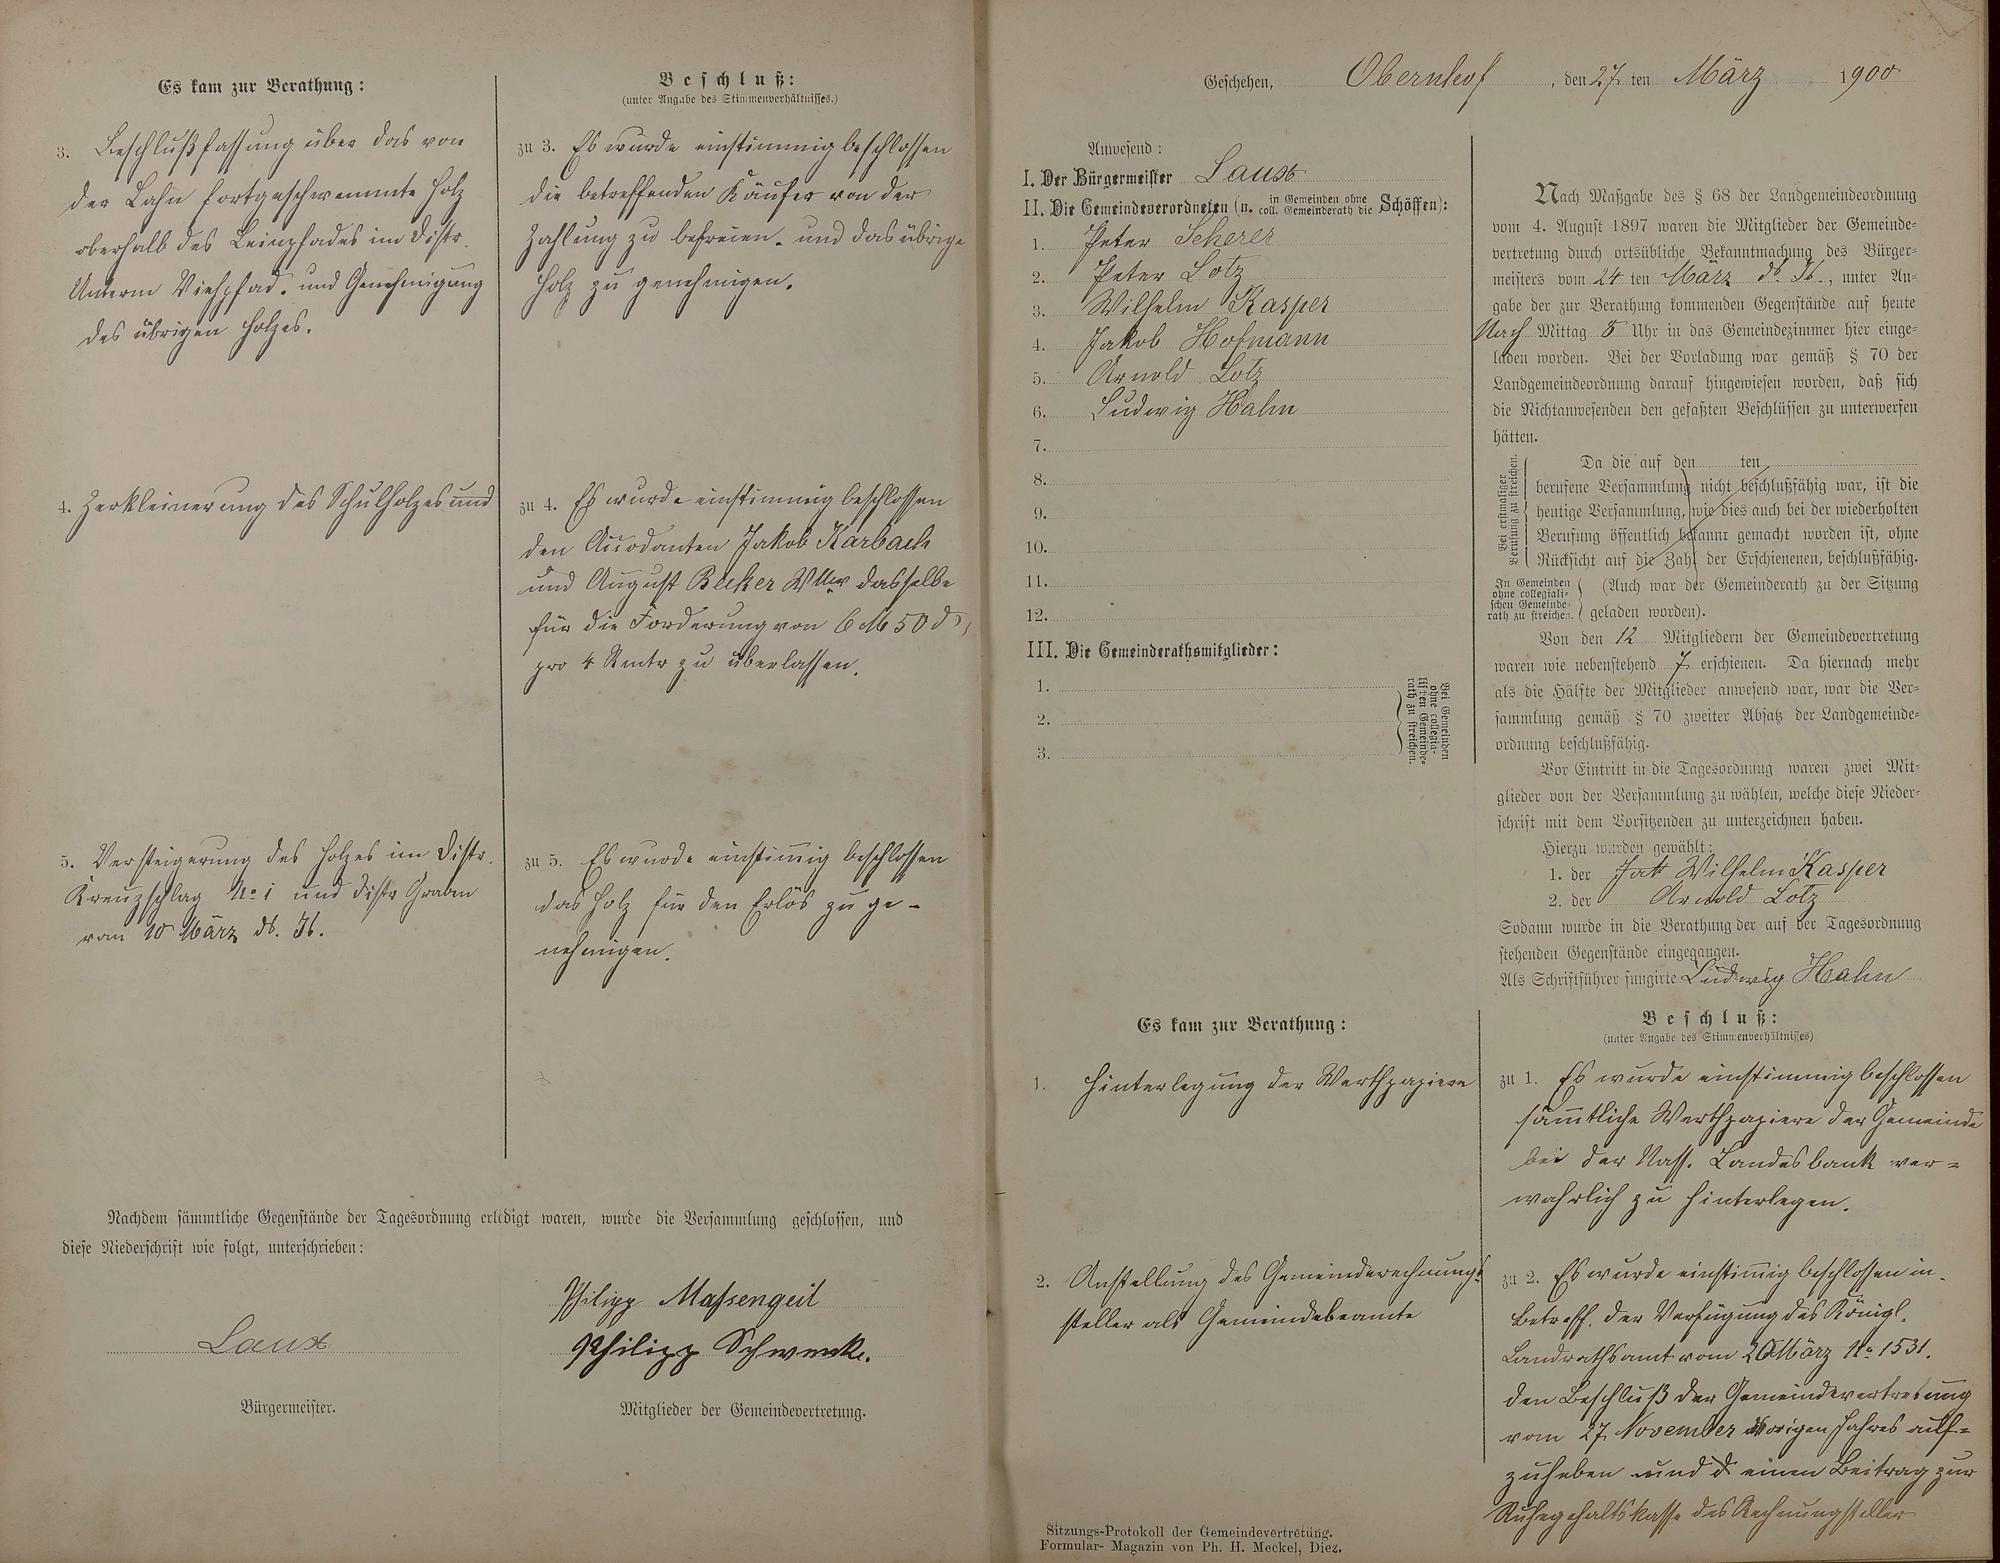 Es kam zur Berathung:
3. Beschlußfassung über das von
der Lahn fortgeschwemmte Holz
oberhalb des Leinpfades im Distr.
Unterm Viehpfad. und Genehmigung
des übrigen Holzes.
4. Zerkleinerung des Schulholzes und
5. Versteigerung des Holzes im Distr.
Kreuzschlag No 1 und Distr Graben
vom 10 März ds. Js.
Beschluß:
(unter Angabe des Stimmenverhältnisses.)
zu 3. Es wurde einstimmig beschlossen
die betreffenden Käufer von der
Zahlung zu befreien. und das übrige
Holz zu genehmigen.
zu 4. Es wurde einstimmig beschlossen
den Jakob Karbach
und August Becker Wllw dasselbe
für die Forderung von 6 M 50 d
pro 4 Rmtr zu überlassen.
zu 5. Es wurde einstimmig beschlossen
das Holz für den Erlös zu ge-
nehmigen.
Nachdem sämmtliche Gegenstände der Tagesordnung erledigt waren, wurde die Versammlung geschlossen, und
diese Niederschrift wie folgt, unterschrieben:
Laux
Bürgermeister.
Philipp Massengeil
Philipp Schwenk.
Mitglieder der Gemeindevertretung.
Geschehen, Obernhof, den 27 ten März 1900
Anwesend:
I. Der Bürgermeister Laux
II. Die Gemeindeverordneten (u. in Gemeinden ohne coll. Gemeinderath die Schöffen):
1. Peter Scherer
2. Peter Lotz
3. Wilhelm Kasper
4. Jakob Hofmann
5. Arnold Lotz
6. Ludwig Hahn
7.
8.
9.
10.
11.
12.
III. Die Gemeinderathsmitglieder:
1.
2.
3.
Bei Gemeinden
ohne collegia-
lischen Gemeinde-
rath zu streichen.
Nach Maßgabe des § 68 der Landgemeindeordnung
vom 4. August 1897 waren die Mitglieder der Gemeinde-
vertretung durch ortsübliche Bekanntmachung des Bürger-
meisters vom 24 ten März ds. Js., unter An-
gabe der zur Berathung kommenden Gegenstände auf heute
Nach Mittag 8 Uhr in das Gemeindezimmer hier einge-
laden worden. Bei der Vorladung war gemäß § 70 der
Landgemeindeordnung darauf hingewiesen worden, daß sich
die Nichtanwesenden den gefaßten Beschlüssen zu unterwerfen
hätten.
Bei erstmaliger
Berufung zu streichen.
Da die auf den ten
berufene Versammlung nicht beschlußfähig war, ist die
heutige Versammlung, wie dies auch bei der wiederholten
Berufung öffentlich bekannt gemacht worden ist, ohne
Rücksicht auf die Zahl der Erschienenen, beschlußfähig.
In Gemeinden
ohne collegiali-
schen Gemeinde-
rath zu streichen.
(Auch war der Gemeinderath zu der Sitzung
geladen worden).
Von den 12 Mitgliedern der Gemeindevertretung
waren wie nebenstehend 7 erschienen. Da hiernach mehr
als die Hälfte der Mitglieder anwesend war, war die Ver-
sammlung gemäß § 70 zweiter Absatz der Landgemeinde-
ordnung beschlußfähig.
Vor Eintritt in die Tagesordnung waren zwei Mit-
glieder von der Versammlung zu wählen, welche diese Nieder-
schrift mit dem Vorsitzenden zu unterzeichnen haben.
Hierzu wurden gewählt:
1. der Wilhelm Kasper
2. der Arnold Lotz
Sodann wurde in die Berathung der auf der Tagesordnung
stehenden Gegenstände eingegangen.
Als Schriftführer fungirte Ludwig Hahn
Es kam zur Berathung:
1. Hinterlegung der Werthpapiere
2. Anstellung des Gemeinderechnungs-
steller als Gemeindebeamte
Beschluß:
(unter Angabe des Stimmenverhältnisses)
zu 1. Es wurde einstimmig beschlossen
sämtliche Werthpapiere der Gemeinde
bei der Nass. Landesbank ver=
wahrlich zu hinterlegen.
zu 2. Es wurde einstimig beschlossen in-
betreff. der Verfügung des Königl.
Landrathsamt vom 20 März No 1531.
den Beschluß der Gemeindevertretung
vom 27 November vorigen Jahres auf=
zuheben und einen Beitrag zur
Ruhegehaltskasse des Rechnungsteller
Sitzungs-Protokoll der Gemeindevertretung.
Formular- Magazin von Ph. H. Meckel, Diez.